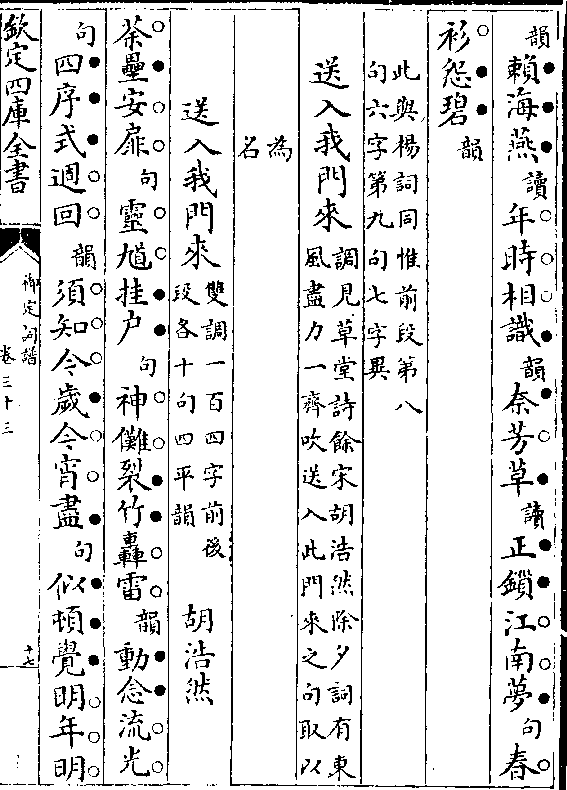 韻賴海燕讀年時相識韻奈芳草讀正鎖江南夢句春
衫怨碧韻
此與楊詞同惟前段第八
句六字第九句七字異
送入我門來調見草堂詩餘宋胡浩然除夕詞有東
風盡力一齊吹送入此門來之句取以
為
名
送入我門來雙調一百四字前後
段各十句四平韻
胡浩然
荼壘安扉句靈馗挂户句神儺裂竹轟雷韻動念流光
句四序式週回韻須知今歲今宵盡句似頓覺明年明
欽定四庫全書
御定詞譜
卷三十三
十七